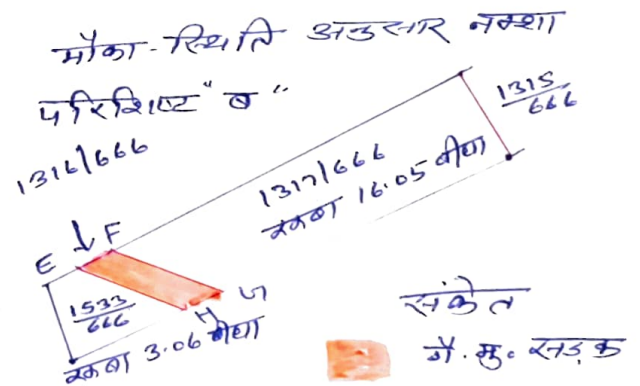 मौका-स्थिति अनुसार नक्शा
परिशिष्ट "ब"
1316/666
1315/666
1317/666
रकबा 16.05 बीघा
E ↓ F
1533/666
H G
रकबा 3.06 बीघा
संकेत
गै.मु. सड़क